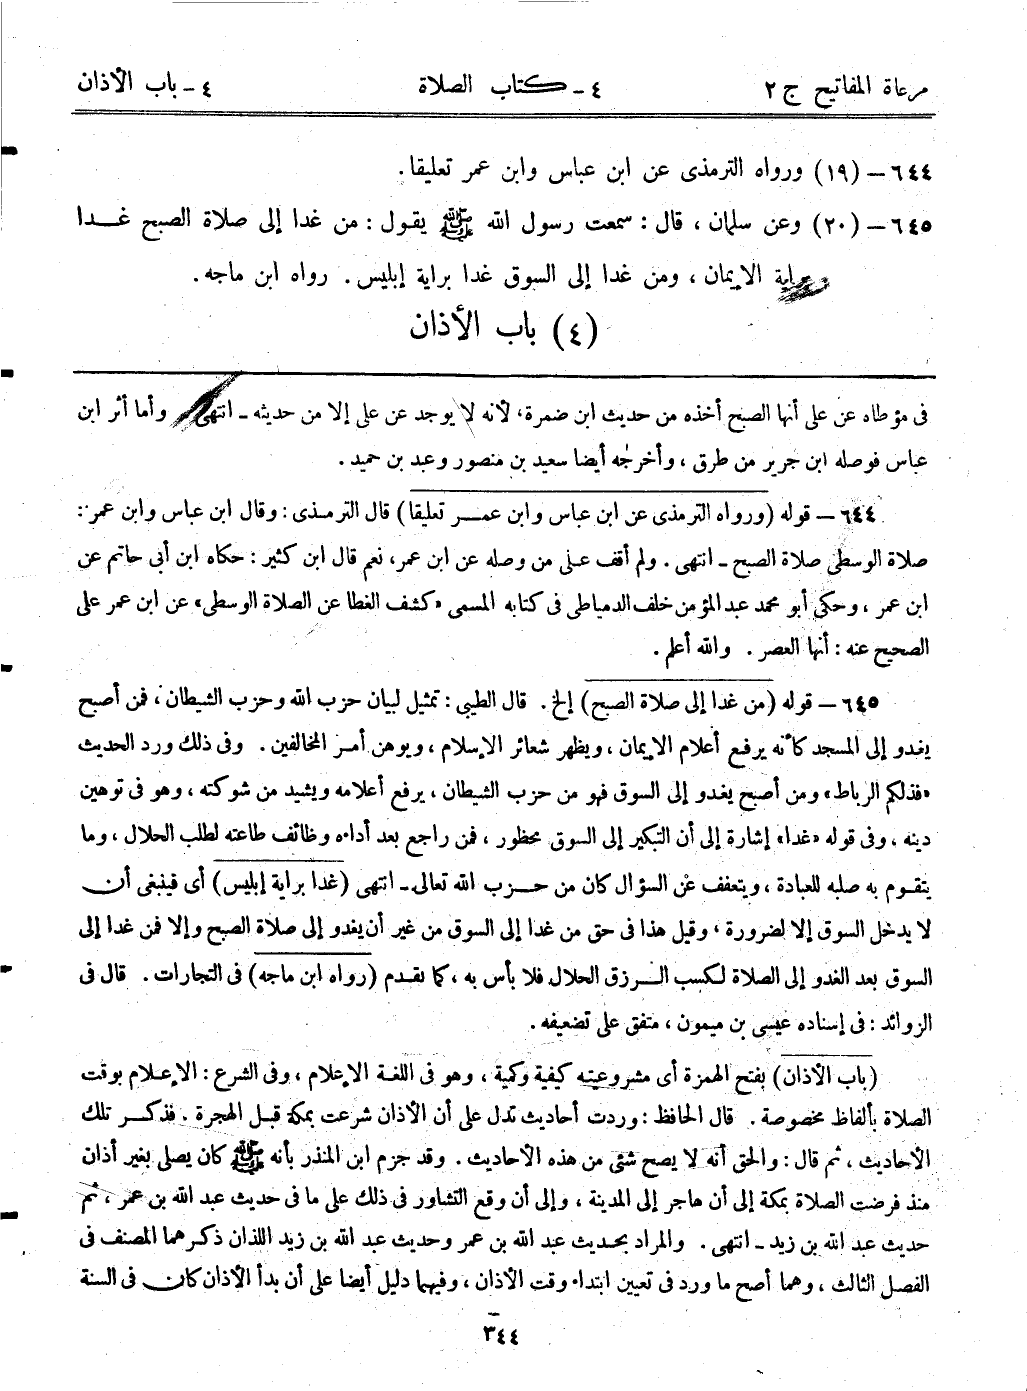 مرعاة المفاتيح ج ٢ ٤ - كتاب الصلاة ٤ - باب الأذان
٦٤٤ – (١٩) ورواه الترمذى عن ابن عباس وابن عمر تعليقا.
٦٤٥ – (٢٠) وعن سلمان ، قال : سمعت رسول الله ﷺ يقول : من غدا إلى صلاة الصبح غدا
براية الإيمان ، ومن غدا إلى السوق غدا براية إبليس . رواه ابن ماجه .
(٤) باب الأذان
فى مؤطاه عن على أنها الصبح أخذه من حديث ابن ضمرة، لأنه لا يوجد عن على إلا من حديثه - انتهى وأما أثر ابن
عباس فوصله ابن جرير من طرق ، وأخرجه أيضا سعيد بن منصور وعبد بن حميد .
٦٤٤ – قوله (ورواه الترمذى عن ابن عباس وابن عمر تعليقا) قال الترمذى : وقال ابن عباس وابن عمر :
صلاة الوسطى صلاة الصبح - انتهى . ولم أقف على من وصله عن ابن عمر، نعم قال ابن كثير : حكاه ابن أبى حاتم عن
ابن عمر ، وحكى أبو محمد عبد المؤمن خلف الدمياطى فى كتابه المسمى «كشف الغطا عن الصلاة الوسطى» عن ابن عمر على
الصحيح عنه : أنها العصر . والله أعلم .
٦٤٥ – قوله (من غدا إلى صلاة الصبح) إلخ . قال الطيبى : تمثيل لبيان حزب الله وحزب الشيطان ، فمن أصبح
يغدو إلى المسجد كأنه يرفع أعلام الإيمان ، ويظهر شعائر الإسلام ، ويوهن أمر المخالفين . وفى ذلك ورد الحديث
«فذلكم الرباط» ومن أصبح يغدو إلى السوق فهو من حزب الشيطان ، يرفع أعلامه ويشيد من شوكته ، وهو فى توهين
دينه ، وفى قوله «غدا» إشارة إلى أن التبكير إلى السوق محظور ، فمن راجع بعد أداء وظائف طاعته لطلب الحلال ، وما
يتقوم به صلبه للعبادة ، ويتعفف عن السؤال كان من حزب الله تعالى - انتهى (غدا براية إبليس) أى فينبغى أن
لا يدخل السوق إلا لضرورة ، وقيل هذا فى حق من غدا إلى السوق من غير أن يغدو إلى صلاة الصبح وإلا فمن غدا إلى
السوق بعد الغدو إلى الصلاة لكسب الرزق الحلال فلا بأس به ، كما تقدم (رواه ابن ماجه) فى التجارات . قال فى
الزوائد : فى إسناده عيسى بن ميمون ، متفق على تضعيفه .
(باب الأذان) بفتح الهمزة أى مشروعيته كيفية وكمية ، وهو فى اللغة الإعلام ، وفى الشرع : الإعلام بوقت
الصلاة بألفاظ مخصوصة . قال الحافظ : وردت أحاديث تدل على أن الأذان شرعت بمكة قبل الهجرة . فذكر تلك
الأحاديث ، ثم قال : والحق أنه لا يصح شئ من هذه الأحاديث . وقد جزم ابن المنذر بأنه ﷺ كان يصلى بغير أذان
منذ فرضت الصلاة بمكة إلى أن هاجر إلى المدينة ، وإلى أن وقع التشاور فى ذلك على ما فى حديث عبد الله بن عمر ، ثم
حديث عبد الله بن زيد - انتهى . والمراد بحديث عبد الله بن عمر وحديث عبد الله بن زيد اللذان ذكرهما المصنف فى
الفصل الثالث ، وهما أصح ما ورد فى تعيين ابتداء وقت الأذان ، وفيهما دليل أيضا على أن بدأ الأذان كان فى السنة
٣٤٤